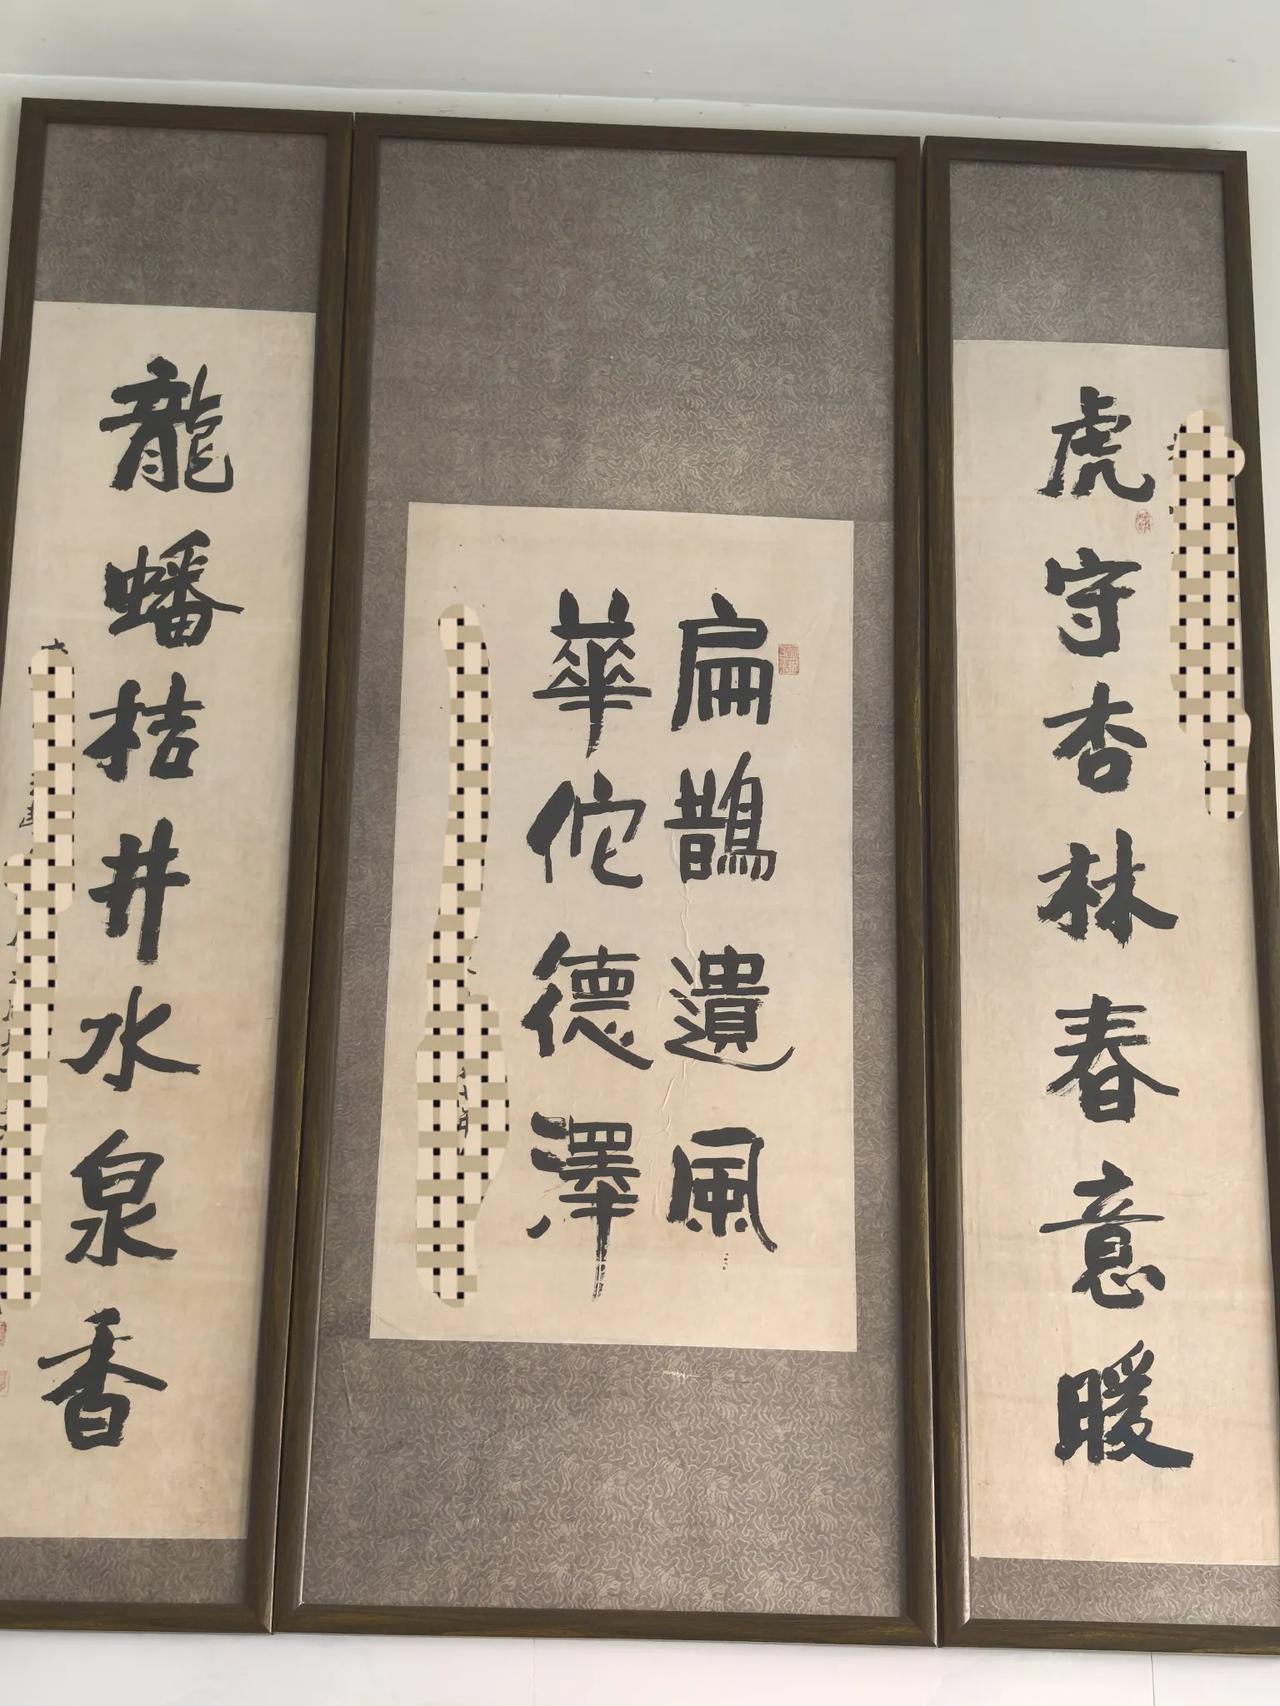 虎守杏林春意暖
扁鵲遺風
華佗德澤
龍蟠桔井水泉香